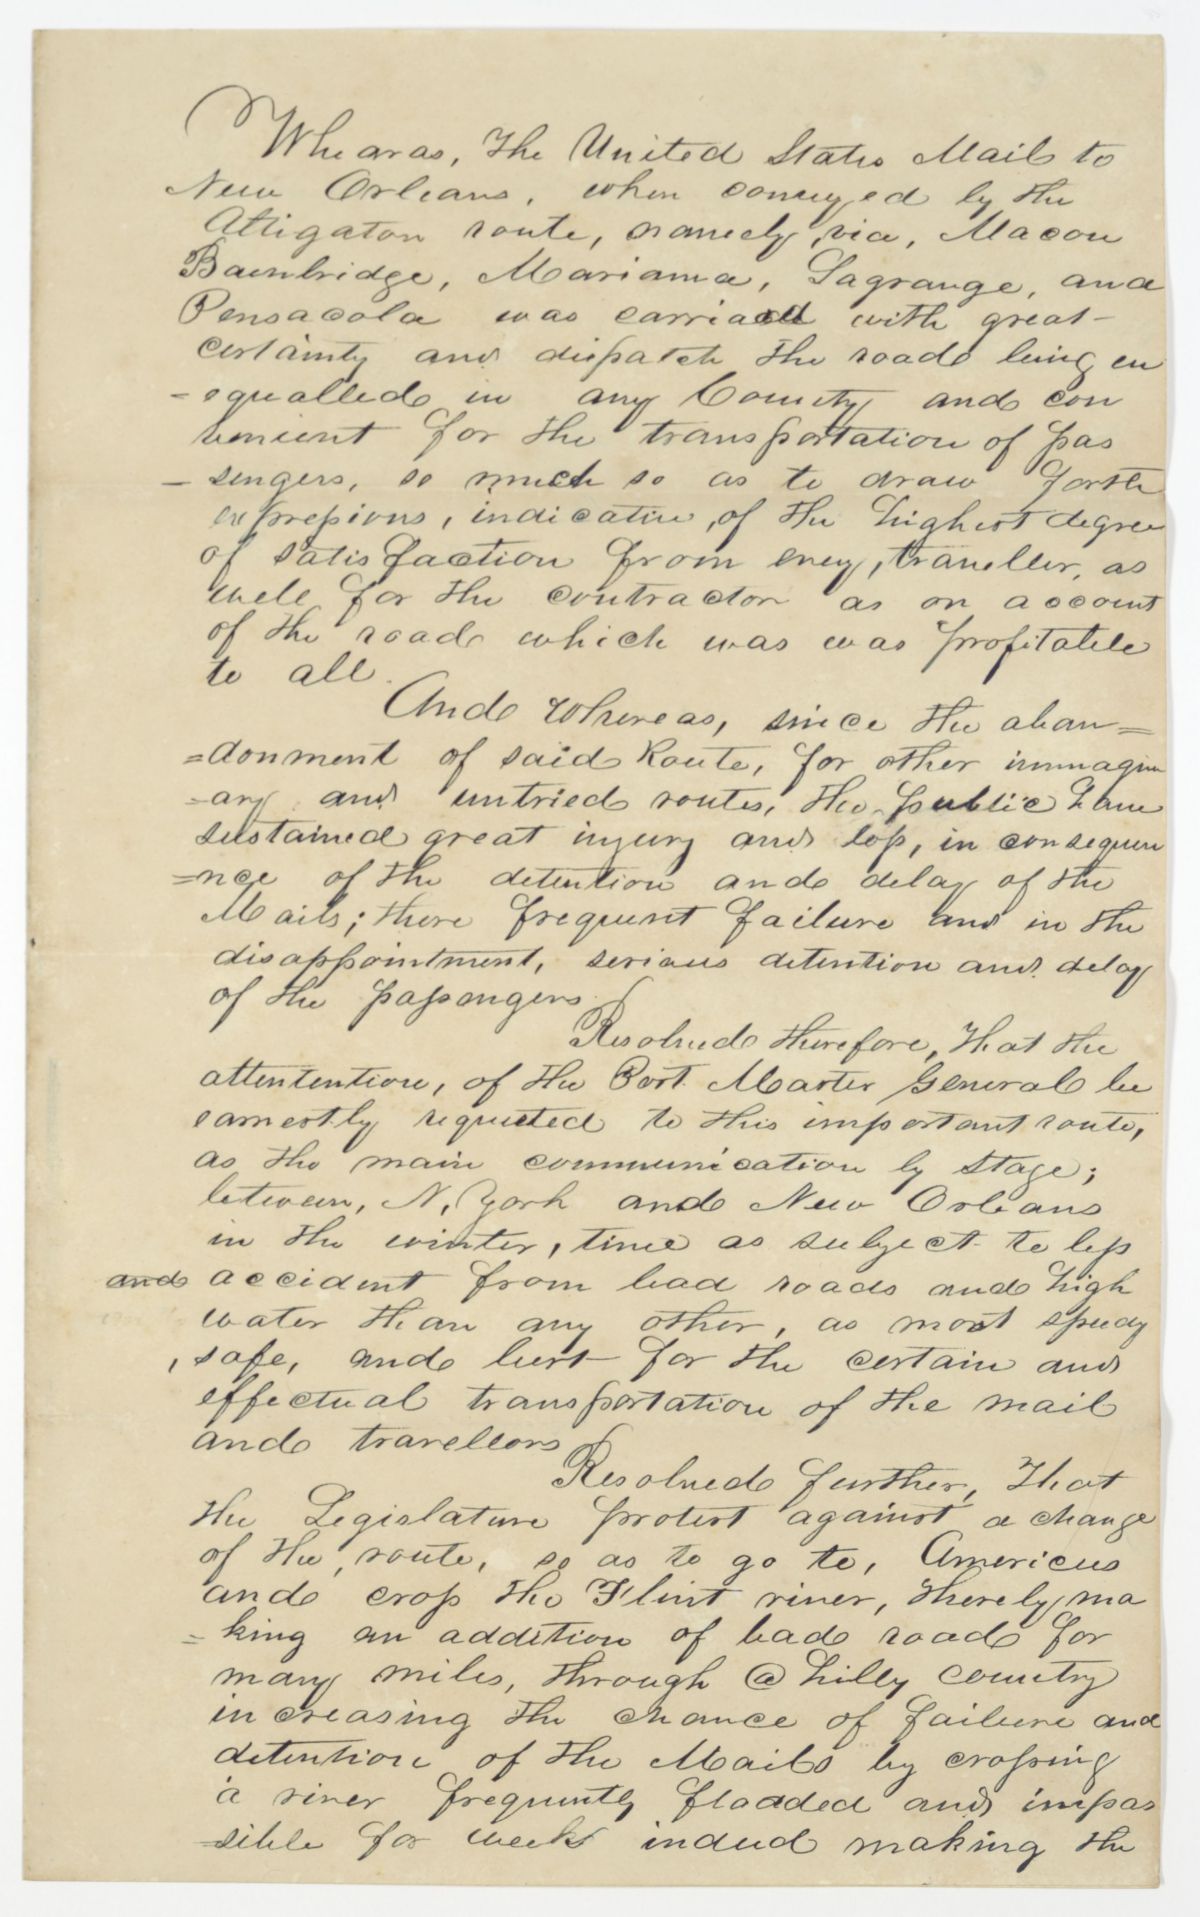 Whearas, The United States Mail to
New Orleans, when conveyed by the
Alligator route, namely, via, Macon
Bainbridge, Marianna, Lagrange, and
Pensacola was carried with great
certainty and dispatch the road being en
=equalled in any County and con
venient for the transportation of pas
- sengers, so much so as to draw forth
expressions, indicative, of the highest degree
of satisfaction from every, traveller, as
well for the contractor as on account
of the road which was was profitable
to all.
And Whereas, since the aban=
=donment of said Route, for other immagin
=ary and untried routes, the public have
sustained great injury and loss, in consequen
=nce of the detention and delay of the
Mails; there frequent failure and in the
disappointment, serious detention and delay
of the passengers
Resolved therefore, That the
attentention, of the Post Master General be
earnestly requested to this important route,
as the main communication by stage;
between, N. York and New Orleans
in the winter, time as subject to less
and accident from bad roads and high
water than any other, as most speedy
, safe, and best for the certain and
effectual transportation of the mail
and travellors
Resolved further, That
the Legislature protest against a change
of the, route, so as to go to, Americus
and cross the Flint river, thereby ma
=king an addition of bad road for
many miles, through @ hilly country
increasing the chance of failure and
detention of the Mails by crossing
a river frequently flooded and impas
=sible for weeks indeed making the